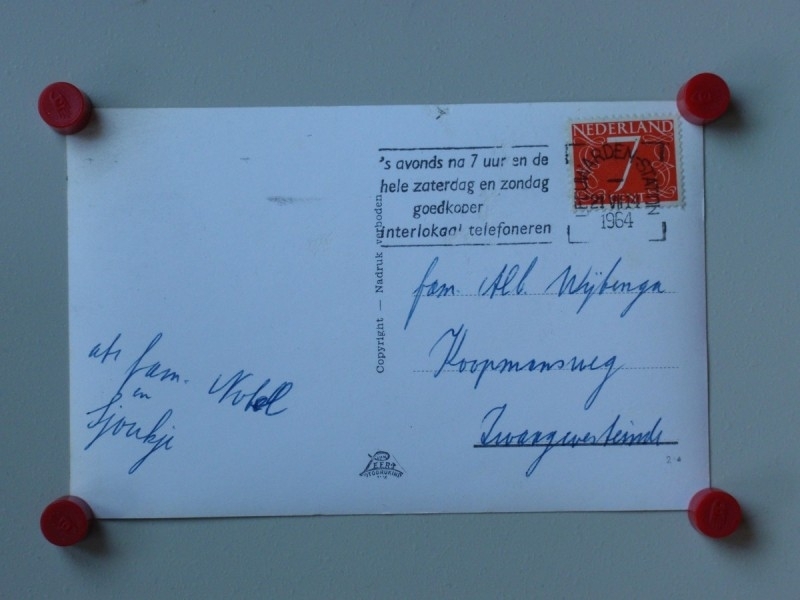 's avonds na 7 uur en de
hele zaterdag en zondag
goedkoper
interlokaal telefoneren
NEDERLAND
7
LEEUWARDEN-STATION
21 VII 14
1964
Copyright — Nadruk verboden
fam. Alb. Wijbenga
Koopmansweg
Zwaagwesteinde
afz fam. Nobel
en
Sjoukje